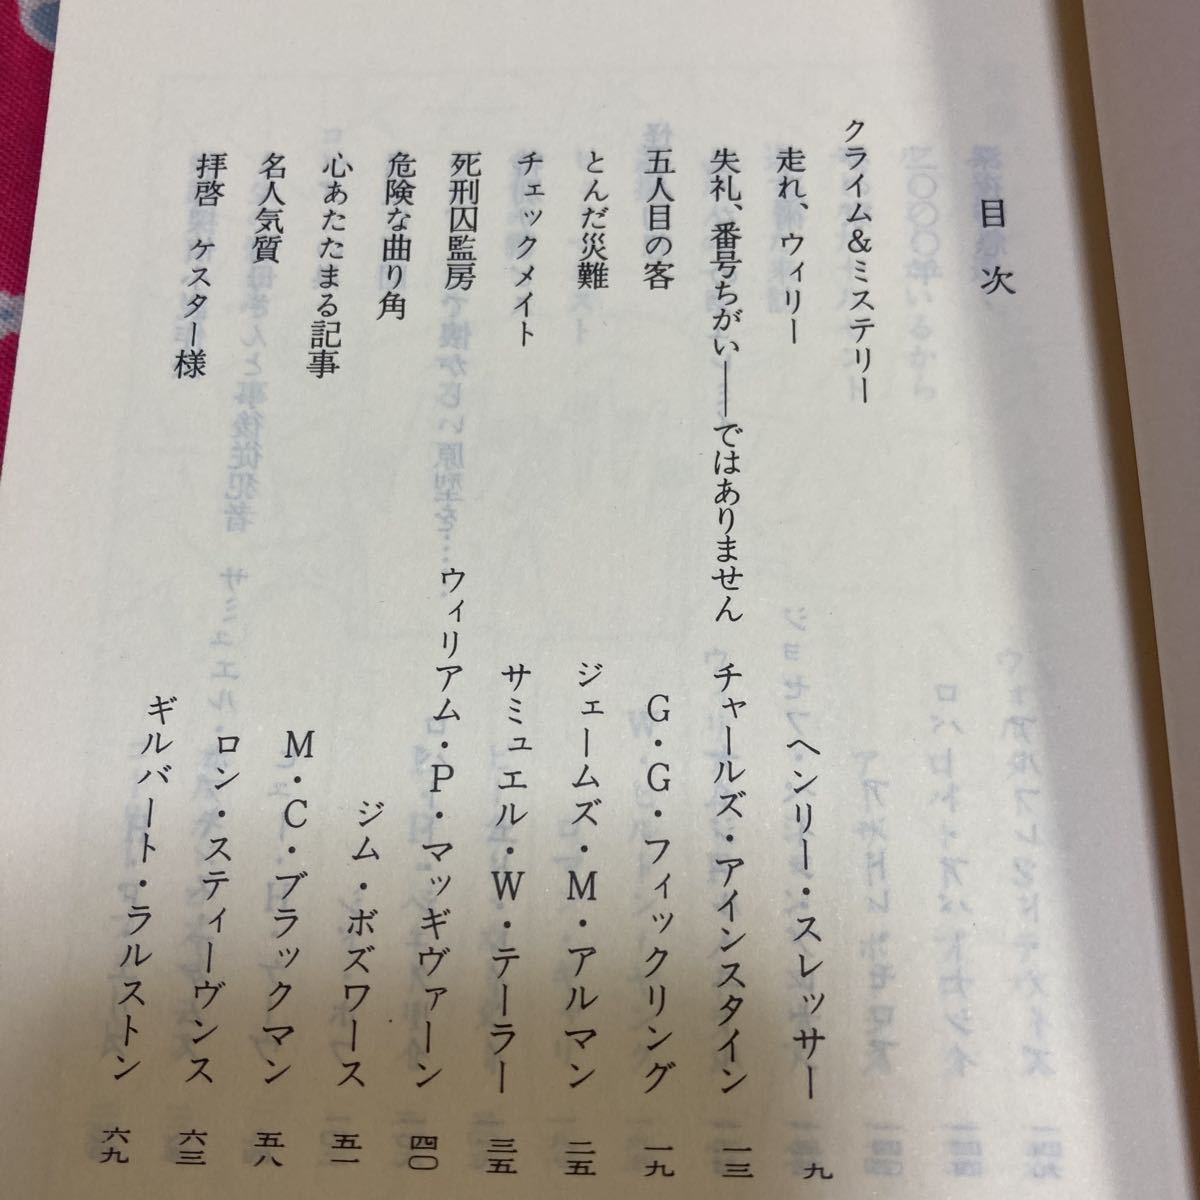 目次
クライム&ミステリー
走れ、ウィリー ヘンリー・スレッサー 九
失礼、番号ちがい――ではありません チャールズ・アインスタイン 一三
五人目の客 G・G・フィックリング 一九
とんだ災難 ジェームズ・M・アルマン 二五
チェックメイト サミュエル・W・テーラー 三五
死刑囚監房 ウィリアム・P・マッギヴァーン 四〇
危険な曲り角 ジム・ボズワース 五一
心あたたまる記事 M・C・ブラックマン 五八
名人気質 ロン・スティーヴンス 六三
拝啓 ケスター様 ギルバート・ラルストン 六九